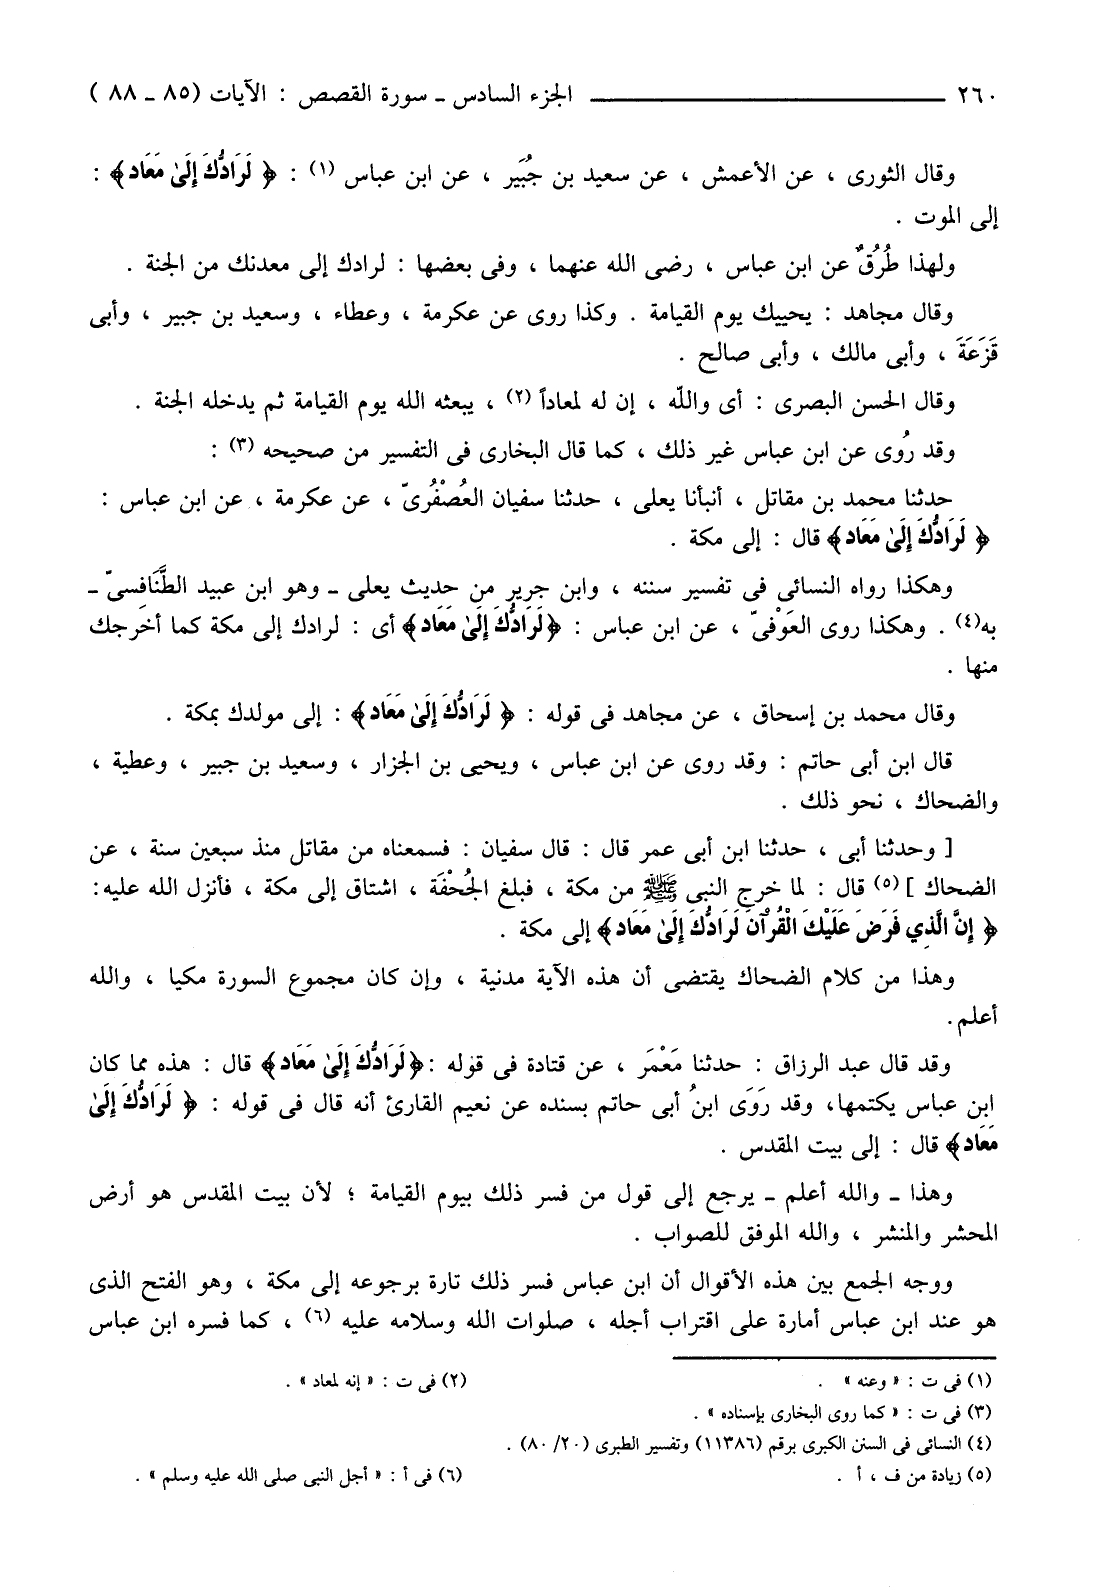 ٢٦٠ ــــــــــ الجزء السادس ـ سورة القصص : الآيات (٨٥ ـ ٨٨ )
وقال الثورى ، عن الأعمش ، عن سعيد بن جُبَير ، عن ابن عباس (١) : ﴿ لَرَادُّكَ إِلَىٰ مَعَاد﴾ :
إلى الموت .
ولهذا طُرُقٌ عن ابن عباس ، رضى الله عنهما ، وفى بعضها : لرادك إلى معدنك من الجنة .
وقال مجاهد : يحييك يوم القيامة . وكذا روى عن عكرمة ، وعطاء ، وسعيد بن جبير ، وأبى
قَزَعَةَ ، وأبى مالك ، وأبى صالح .
وقال الحسن البصرى : أى واللّه ، إن له لمعاداً (٢) ، يبعثه الله يوم القيامة ثم يدخله الجنة .
وقد رُوى عن ابن عباس غير ذلك ، كما قال البخارى فى التفسير من صحيحه (٣) :
حدثنا محمد بن مقاتل ، أنبأنا يعلى ، حدثنا سفيان العُصْفُرىّ ، عن عكرمة ، عن ابن عباس :
﴿ لَرَادُّكَ إِلَىٰ مَعَاد﴾ قال : إلى مكة .
وهكذا رواه النسائى فى تفسير سننه ، وابن جرير من حديث يعلى ـ وهو ابن عبيد الطَّنَافِسىّ ـ
به(٤) . وهكذا روى العَوْفىّ ، عن ابن عباس : ﴿لَرَادُّكَ إِلَىٰ مَعَاد﴾ أى : لرادك إلى مكة كما أخرجك
منها .
وقال محمد بن إسحاق ، عن مجاهد فى قوله : ﴿ لَرَادُّكَ إِلَىٰ مَعَاد﴾ : إلى مولدك بمكة .
قال ابن أبى حاتم : وقد روى عن ابن عباس ، ويحيى بن الجزار ، وسعيد بن جبير ، وعطية ،
والضحاك ، نحو ذلك .
[ وحدثنا أبى ، حدثنا ابن أبى عمر قال : قال سفيان : فسمعناه من مقاتل منذ سبعين سنة ، عن
الضحاك ] (٥) قال : لما خرج النبى ﷺ من مكة ، فبلغ الجُحْفَة ، اشتاق إلى مكة ، فأنزل الله عليه:
﴿ إِنَّ الَّذِي فَرَضَ عَلَيْكَ الْقُرْآنَ لَرَادُّكَ إِلَىٰ مَعَاد﴾ إلى مكة .
وهذا من كلام الضحاك يقتضى أن هذه الآية مدنية ، وإن كان مجموع السورة مكيا ، والله
أعلم.
وقد قال عبد الرزاق : حدثنا مَعْمَر ، عن قتادة فى قوله :﴿لَرَادُّكَ إِلَىٰ مَعَاد﴾ قال : هذه مما كان
ابن عباس يكتمها، وقد رَوَى ابنُ أبى حاتم بسنده عن نعيم القارئ أنه قال فى قوله : ﴿ لَرَادُّكَ إِلَىٰ
مَعَاد﴾ قال : إلى بيت المقدس .
وهذا ـ والله أعلم ـ يرجع إلى قول من فسر ذلك بيوم القيامة ؛ لأن بيت المقدس هو أرض
المحشر والمنشر ، والله الموفق للصواب .
ووجه الجمع بين هذه الأقوال أن ابن عباس فسر ذلك تارة برجوعه إلى مكة ، وهو الفتح الذى
هو عند ابن عباس أمارة على اقتراب أجله ، صلوات الله وسلامه عليه (٦) ، كما فسره ابن عباس
(١) فى ت : « وعنه » . (٢) فى ت : « إنه لمعاد » .
(٣) فى ت : « كما روى البخارى بإسناده » .
(٤) النسائى فى السنن الكبرى برقم (١١٣٨٦) وتفسير الطبرى (٢٠ /٨٠) .
(٥) زيادة من ف ، أ . (٦) فى أ : « أجل النبى صلى الله عليه وسلم » .